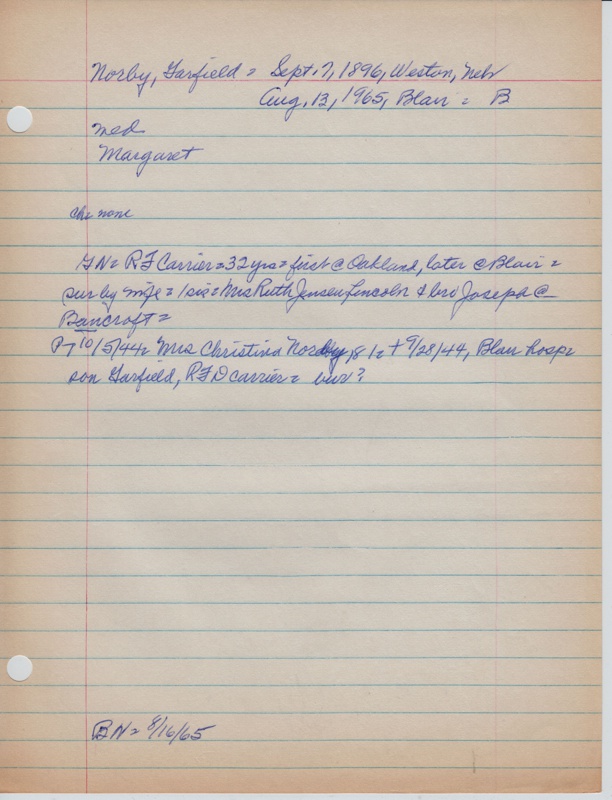 Norby, Garfield = Sept. 7, 1896, Weston, Nebr
Aug. 13, 1965, Blair = B
med
Margaret
chi none
GN= RF Carrier=32 yrs= first @ Oakland, later @ Blair =
sur by wife = 1 sis = Mrs Ruth Jensen Lincoln & bro Joseph @
Bancroft =
10/5/44= Mrs Christina Norby, 81= + 9/28/44, Blair hosp=
son Garfield, RFD carrier = bur?
BN= 8/16/65